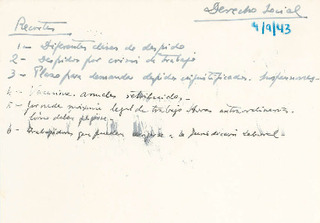 Derecho Social
4/9/43
Recortes
1 - Diferentes clases de despido
2 - Despidos por crisis de trabajo
3 - Plazo para demandas despidos injustificados.
4 - Vacaciones anuales retribuidas.-
5 - jornada máxima legal de trabajo. Horas extraordinarias.
6 - Trabajadores que pueden a la Jurisdicción Laboral.-